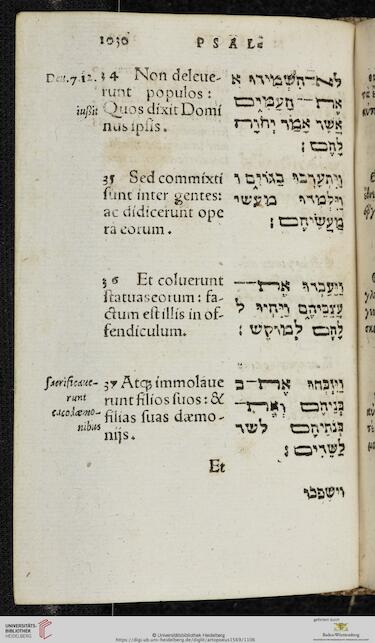 1030 PSAL.
Deu.7.12.
34 Non deleue-
runt populos :
iussit
Quos dixit Domi
nus ipsis.
לא־השמידו א
את־־העמים
אשר אמר יהוה
להם :
35 Sed commixti
sunt inter gentes:
ac didicerunt ope
ra eorum.
ויתערבו בגוים ו
וילמדו מעשי
מעשיהם :
36 Et coluerunt
statuas eorum : fa-
ctum est illis in of-
fendiculum.
ויעבדו את־־
עצביהם ויהיו ל
להם למוקש :
Sacrificaue-
runt
cacodæmo-
nibus
37 Atq; immolaue
runt filios suos : &
filias suas dæmo-
nijs.
ויזבחו את־־ב
בניהם ואת־־
בנתיהם לשד
לשדים :
Et
וישפכו
UNIVERSITÄTS-
BIBLIOTHEK
HEIDELBERG
© Universitätsbibliothek Heidelberg
gefördert durch
Baden-Württemberg